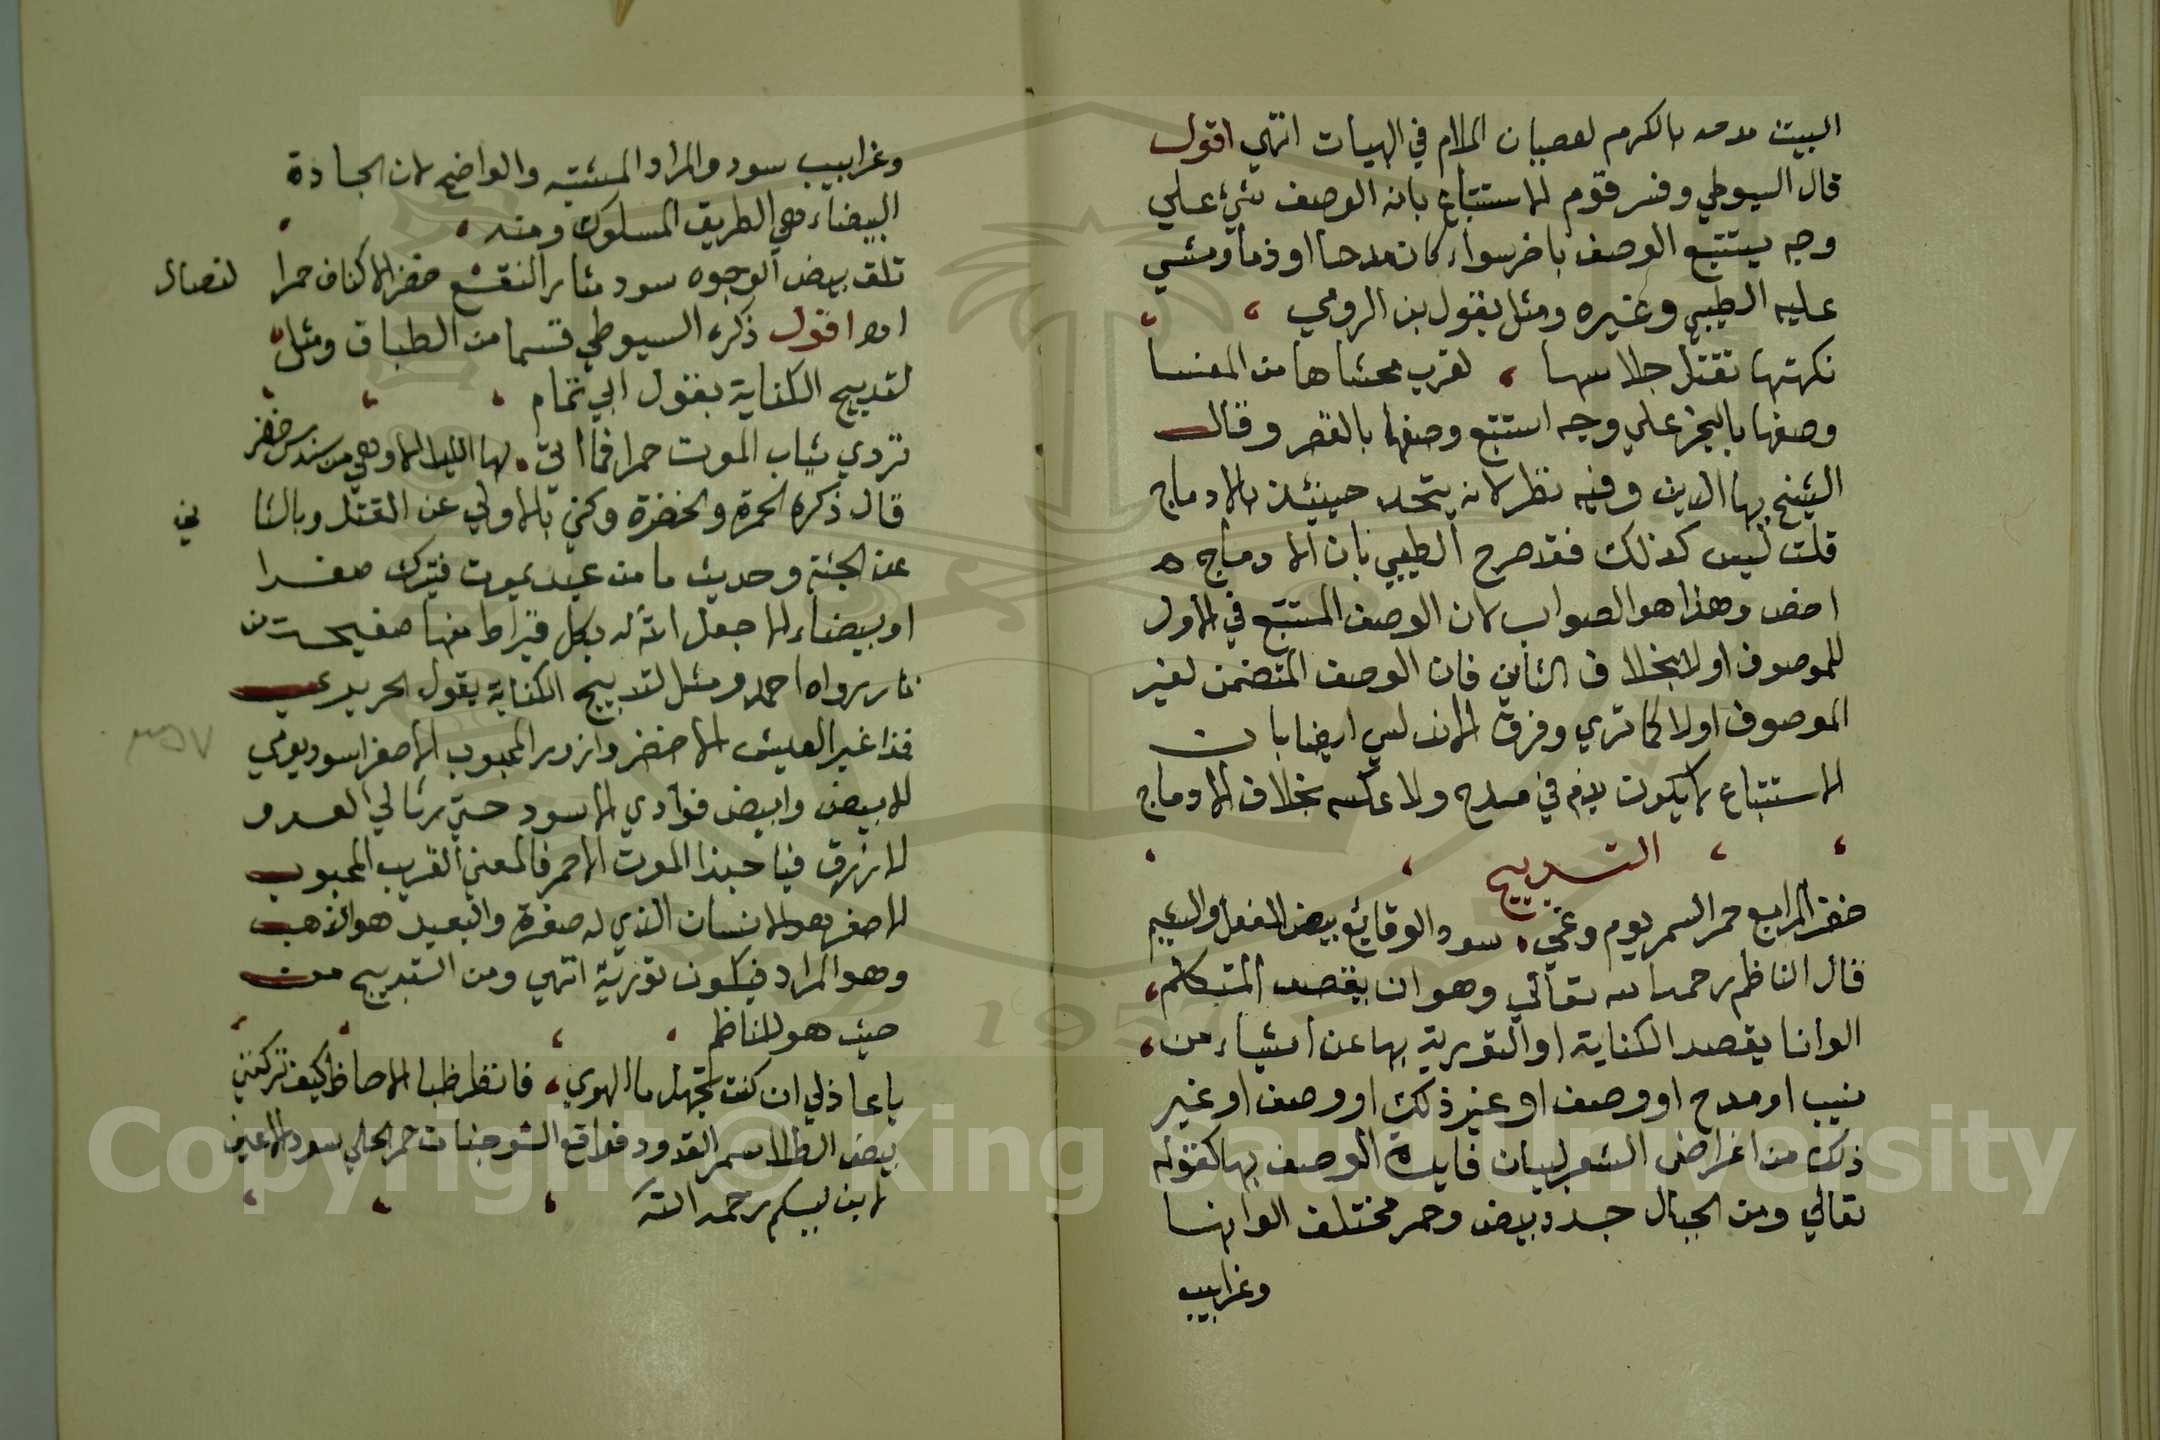 البيت مدحه بالكرم لعصيان الملام في الهبات انتهي اقول
قال السيوطي وفسر قوم الاستتباع بانه الوصف بشيء علي
وجه يستتبع الوصف باخر سواء كان مدحا او ذما ومشي
عليه الطيبي وغيره ومثل بقول بن الرومي
نكهتها تقتل جلاسها لقرب محشاها من المفسا
وصفها بالبخر علي وجه استتبع وصفها بالقصر وقال
الشيخ بها الدين وفيه نظر لانه يتحد حينئذ بالادماج
قلت ليس كذلك فقد صرح الطيبي بان الادماج
اخص وهذا هو الصواب لان الوصف المستتبع في الاول
للموصوف اولا بخلاف الثاني فان الوصف المتضمن لغير
الموصوف اولا كما تري وفرق الاندلسي ايضا بان
الاستتباع لا يكون بذم في مدح ولا عكسه بخلاف الادماج
التدبيج
خضر المرابع حمر السمر يوم وغي سود الوقائع بيض الفعل والشيم
قال الناظم رحمه الله تعالي وهو ان يقصد المتكلم
الوانا يقصد الكناية او التورية بها عن اشياء من
نسب او مدح او وصف او غير ذلك او وصف او غير
ذلك من اغراض الشعر لبيان فايدة الوصف بها كقوله
تعالي ومن الجبال جدد بيض وحمر مختلف الوانها
وغرابيب
وغرابيب سود والمراد المشتبه والواضح لان الجادة
البيضاء هي الطريق المسلوك ومنه
تلق بيض الوجوه سود مثار النقع خضر الاكناف حمرا لنصال
اه اقول ذكره السيوطي قسما من الطباق ومثل
لتدبيج الكناية بقول ابي تمام
تردي ثياب الموت حمرا فما اتي لها الليل الا وهي من سندس خضر
قال ذكره الحمرة والخضرة وكني بالاولي عن القتل وبالثا ني
عن الجنة وحديث ما من عبد يموت فيترك صفرا
او بيضاء الا جعل الله له بكل قيراط منها صفيحة من
نار رواه احمد ومثل لتدبيج الكناية بقول الحريري
فمذ اغبر العيش الاخضر وازور المحبوب الاصفر اسود يومي
الابيض وابيض فوادي الاسود حتي رثا لي العدو
الازرق فيا حبذا الموت الاحمر فالمعني القريب المحبوب
الاصفر هو الانسان الذي له صفرة والبعيد هو الذهب
وهو المراد فيكون تورية انتهي ومن التدبيج من
حيث هو للناظم
يا عاذلي ان كنت تجهل ما الهوي فانظر ظبا الالحاظ كيف تركنني
بيض الطلا سمر القدود فواقع الوجنات حمر الحلي سود الاعين
لابن لبيكم رحمه الله
٣٥٧
Copyright © King Saud University
1957